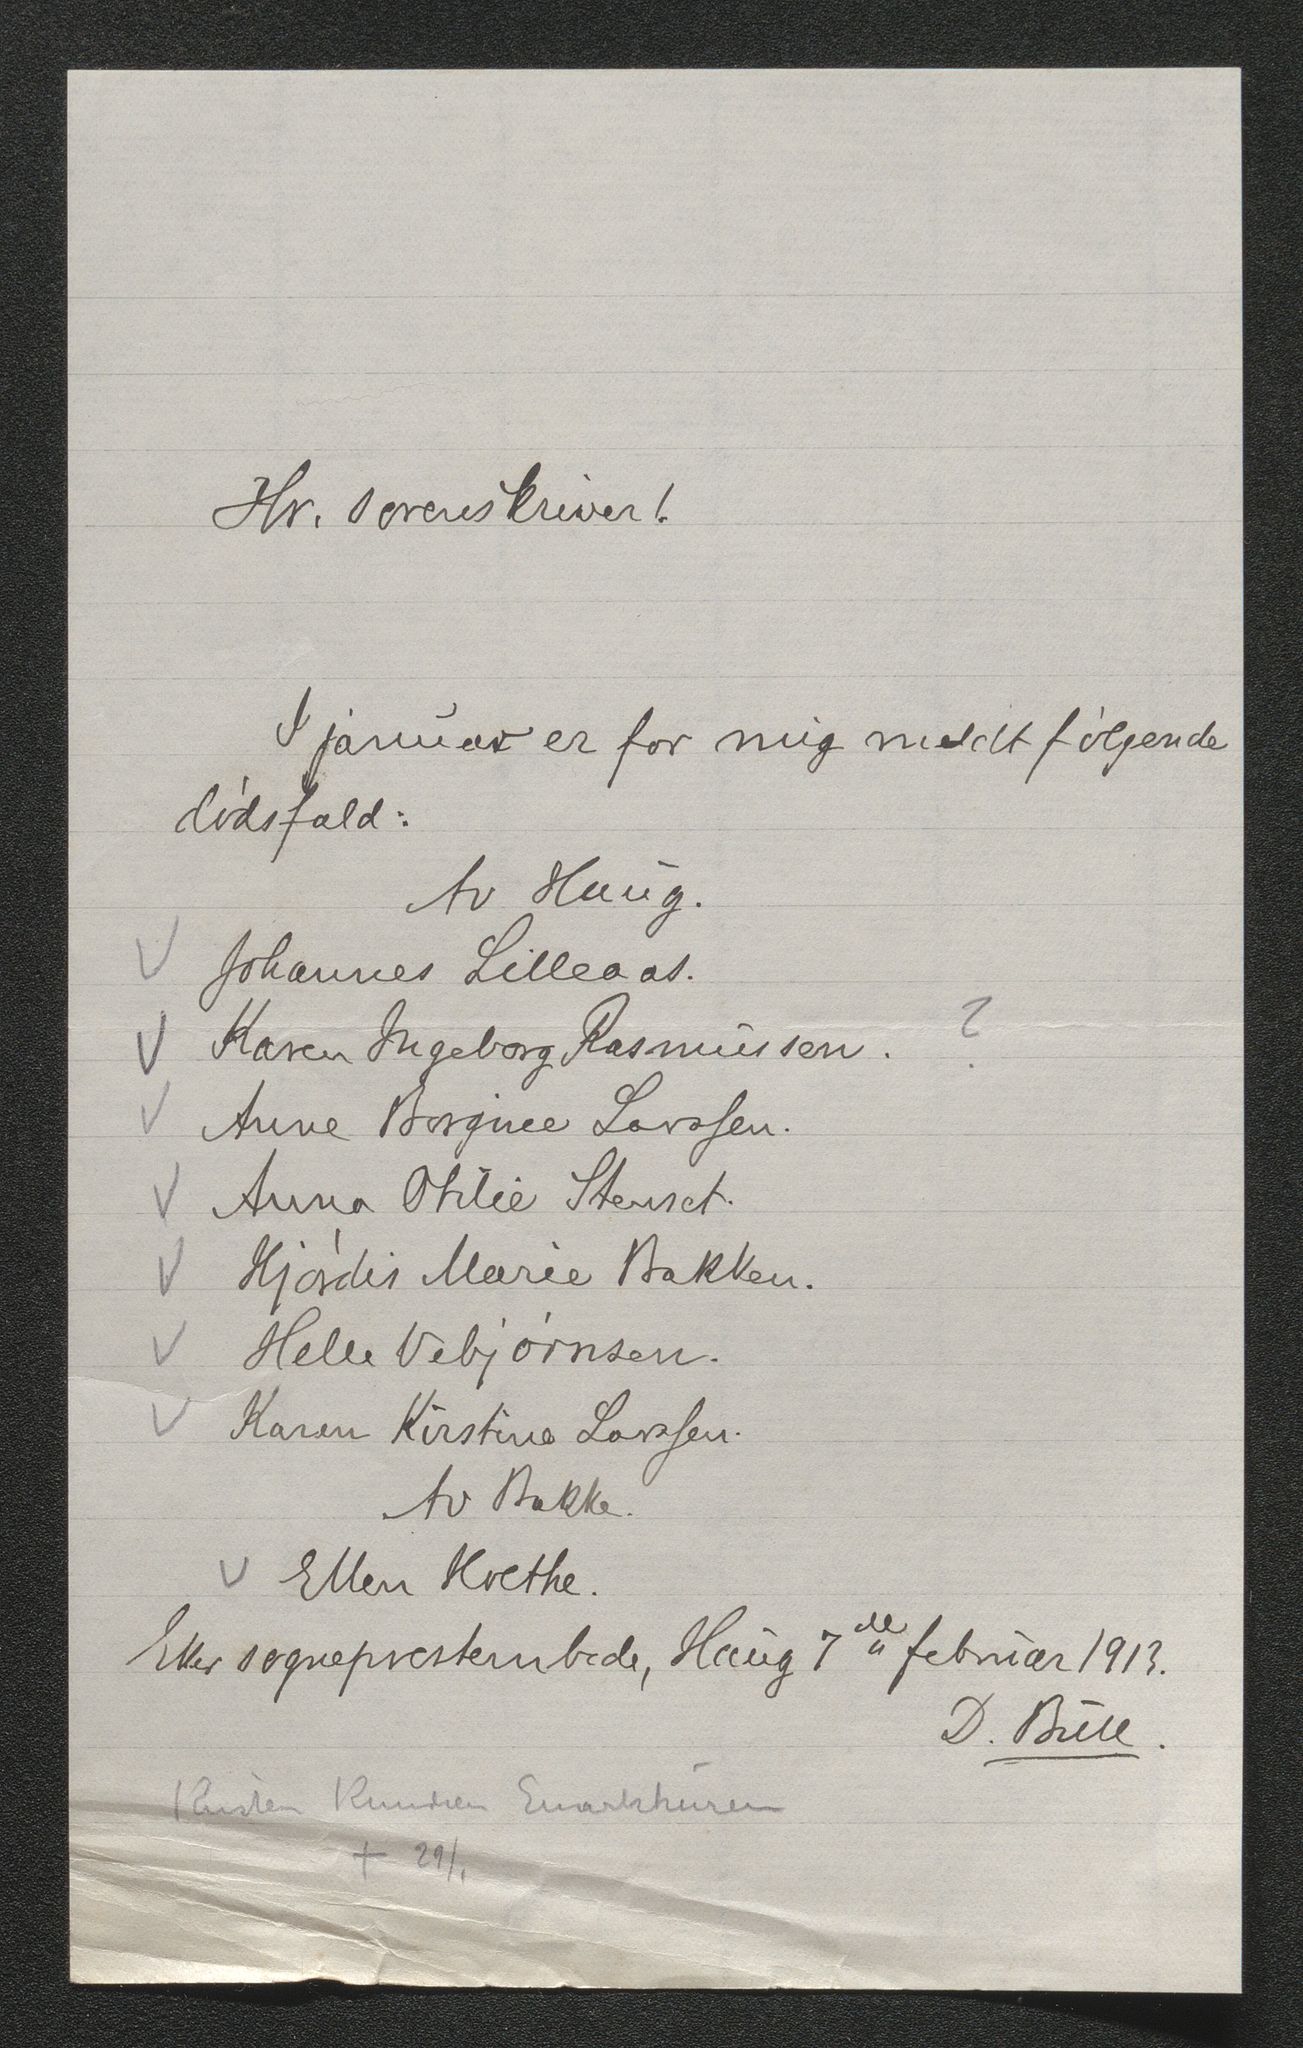 Hr. sorenskriver!
I januar er for mig meldt følgende
dødsfald:
Av Haug.
V Johannes Lilleaas.
V Karen Ingeborg Rasmussen. ?
V Anne Borgine Larssen.
V Anna Otilie Stenset.
V Hjørdis Marie Bakken.
V Helle Vebjørnsen.
V Karen Kirstine Larssen.
Av Bakke.
V Ellen Hvethe.
Eker sogneprestembede, Haug 7de februar 1913.
D. Bull.
Kristen Knudsen
+ 29/1